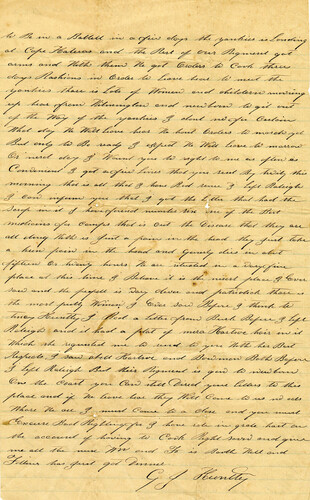 to Be in a Battell in a few days the yankies is Landing
at Cape Hateras and the Rest of our Regment got
arms and With them We got Orders to Cook three
days Rashions in Order to Leave hear to meet the
yankies there is Lots of Women and children moving
up hear from Wilmington and newbern to git out
of the Way of the yankies I dont no for Certain
What day We Will leave hear We hant Orders to march yet
But only to Be ready I expect We Will leave to morrow
Or next day I Want you to right to me as often as
Convenient I got a few lines that you sent By
morning that is all that I have Red sence I left Raleigh
I can inform you that I got the letter that had the
in it I have found number Six one of the Best
for Camps that is out the Disease that they are
all along taken is Just a pain in the head they Just take
a pain in the head and generly dies in about
fifteen or twenty hours We are situated in a
place at this time I Beleave it is as nice a place as I ever
saw and the people is Very Clever and patriotic there is
the most prety Women I Ever saw Before I think to
I Got a letter from Before I left
Raleigh and it had a plat of hair in it
Which she requested me to send to you With her Best
Respects I saw and Bowman Both Before
I left Raleigh But their Regment is gon to newbern
On the Coast you Can still Direct your letters to this
place and if We leave hear they Will Come to us in all
Where We air I must Come to a Close and you must
Excuse Bad Righting for I have rote in grate hast on
the account of having to Cook Right now and give
me all the news Wm and Jo is Both Well and
has Just got Dinner
G J Huntley